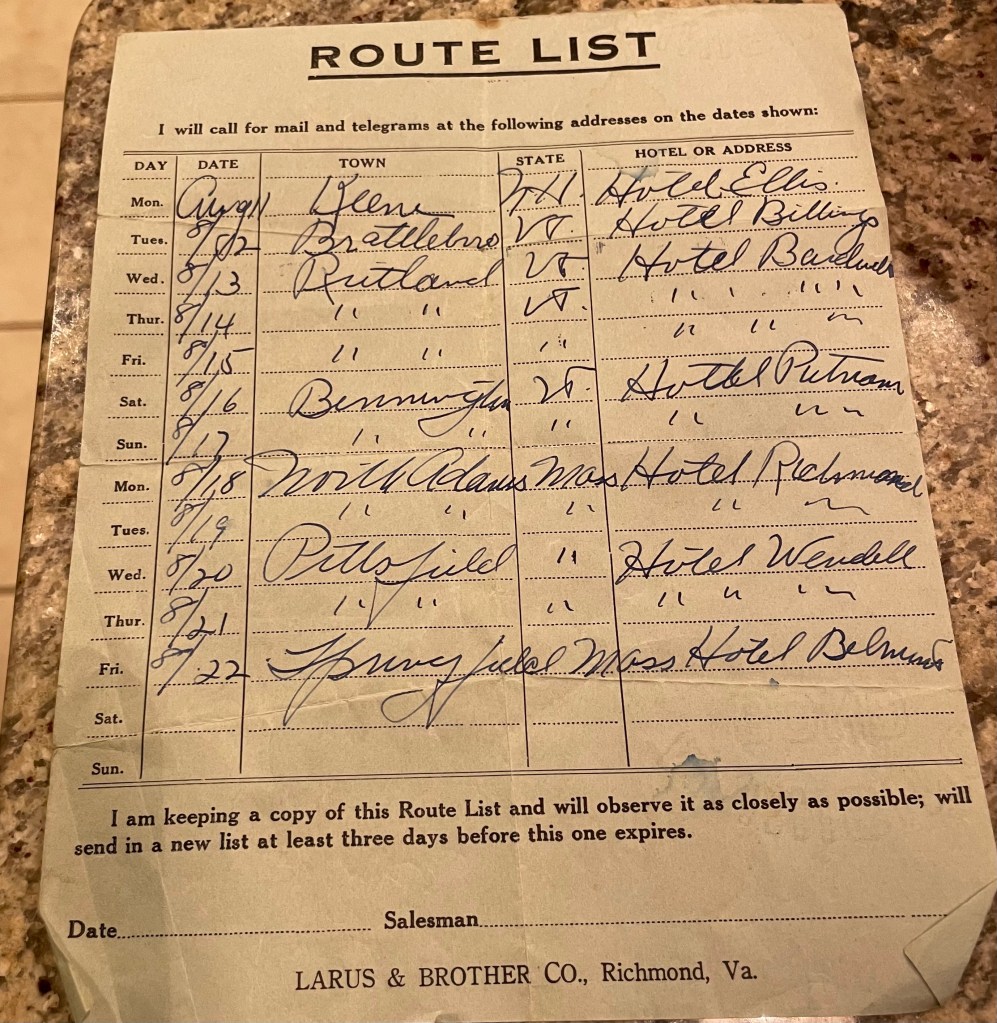 ROUTE LIST
I will call for mail and telegrams at the following addresses on the dates shown:
DAY DATE TOWN STATE HOTEL OR ADDRESS
Mon. Aug 11 Keene N.H. Hotel Ellis.
Tues. 8/12 Brattleboro VT. Hotel Billings
Wed. 8/13 Rutland VT. Hotel Bardwell
Thur. 8/14 " " VT. " " " "
Fri. 8/15 " " " " " "
Sat. 8/16 Bennington VT. Hotel Putnam
Sun. 8/17 " " " " "
Mon. 8/18 North Adams Mass Hotel Richmond
Tues. 8/19 " " " " "
Wed. 8/20 Pittsfield " Hotel Wendell
Thur. 8/21 " " " " " "
Fri. 8/22 Springfield Mass Hotel Belmont
Sat.
Sun.
I am keeping a copy of this Route List and will observe it as closely as possible; will
send in a new list at least three days before this one expires.
Date Salesman
LARUS & BROTHER CO., Richmond, Va.